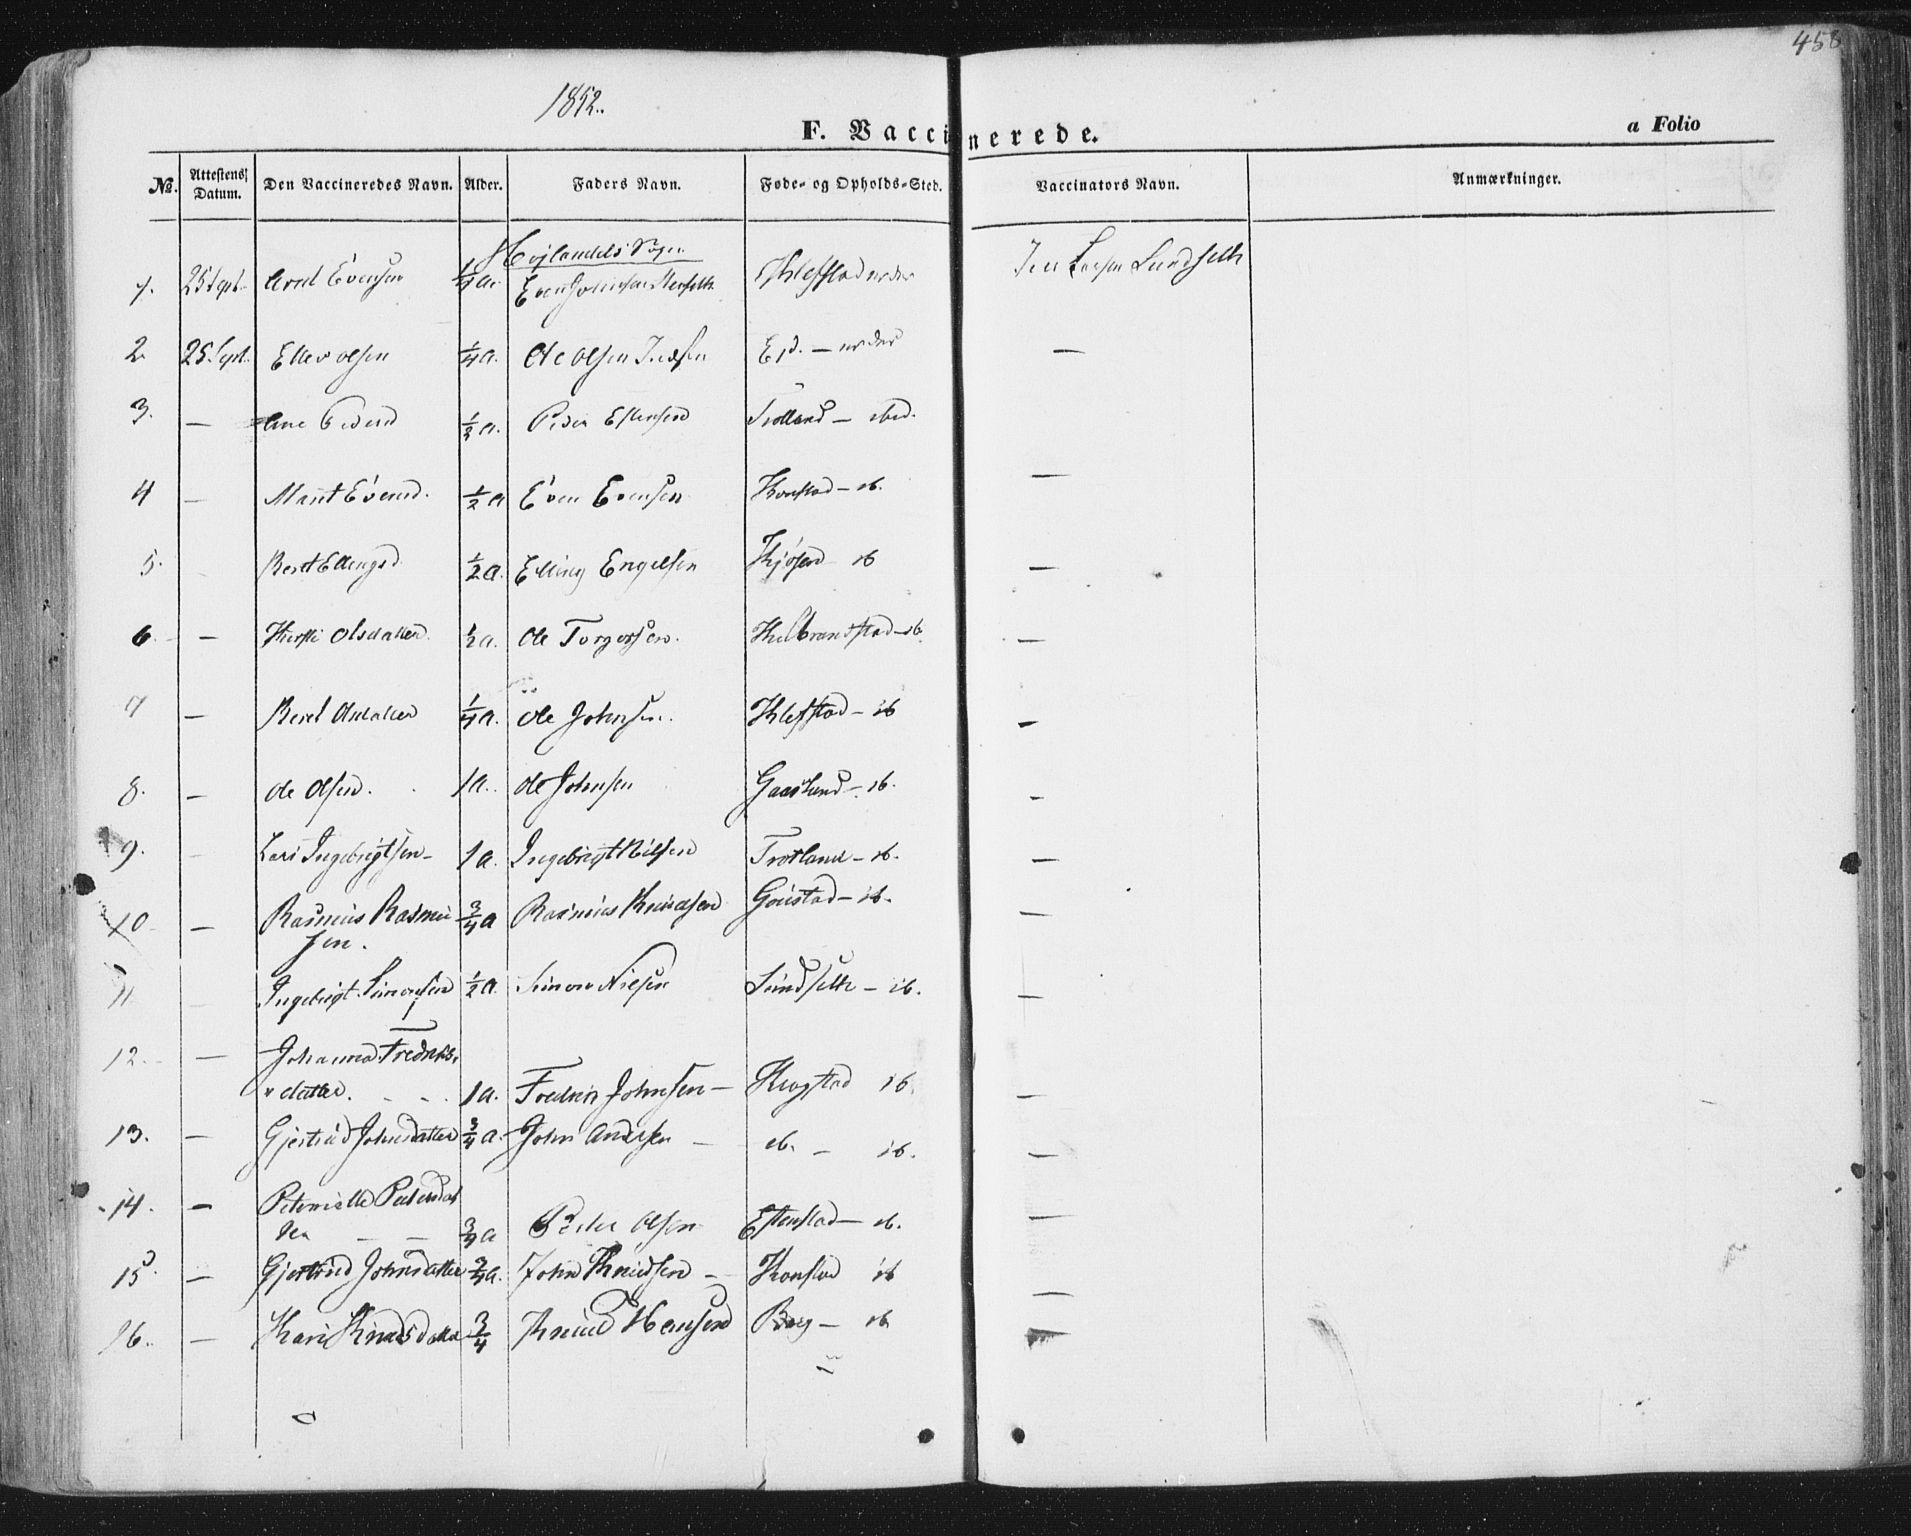 458
1852.
F. Vaccinerede.
a Folio
No. Attestens Datum. Den Vaccineredes Navn. Alder. Faders Navn. Føde- og Opholds-Sted. Vaccinators Navn. Anmærkninger.
Højlandets Sogn
1. 25 Sept. Arnt Evensen 1/4 a. Even Johnsen Klefstad Jens Larsen Lundseth
2 25. Sept. Ellev Olsen 1/4 a. Ole Olsen —
3. — Ane Pedersd 1/2 a. Peder Estensen — ibid.
4 — Marit Evensd. 1/2 a Even Evensen Konstad — ib. —
5. Beret Ellingsd 1/2 a. Elling Engelsen Kjøsen ib —
6. — Kirsti Olsdatter 1/2 a. Ole Torgersen. Hilbrandstad — ib. —
7 — Beret Olsdatter 1/4 a. Ole Johnsen. Klefstad — ib —
8. — Ole Olsen. 1 a. Ole Johnsen Gaasland — ib. —
9. Lars Ingebrigtsen 1 a. Ingebrigt Nilsen Trotland — ib. —
10 — Rasmus Rasmu
sen. 3/4 a Rasmus Knudsen Goustad — ib. —
11 Ingebrigt Simonsen 1/2 a. Simon Nilsen Lundseth — ib. —
12. — Johanna Fredriks
datter. 1 a. Fredrik Johnsen — Krogstad ib —
13. — Gjertrud Johnsdatter 3/4 a. John Andersen — ib. — ib. —
14. — Peternille Pedersdat
ter — — 3/4 a Peder Olsen Estenstad — ib. —
15. — Gjertrud Johnsdatter 3/4 a. John Knudsen — Konstad ib —
16. — Kari Knudsdatter 3/4 Knud Hansen Berg — ib —